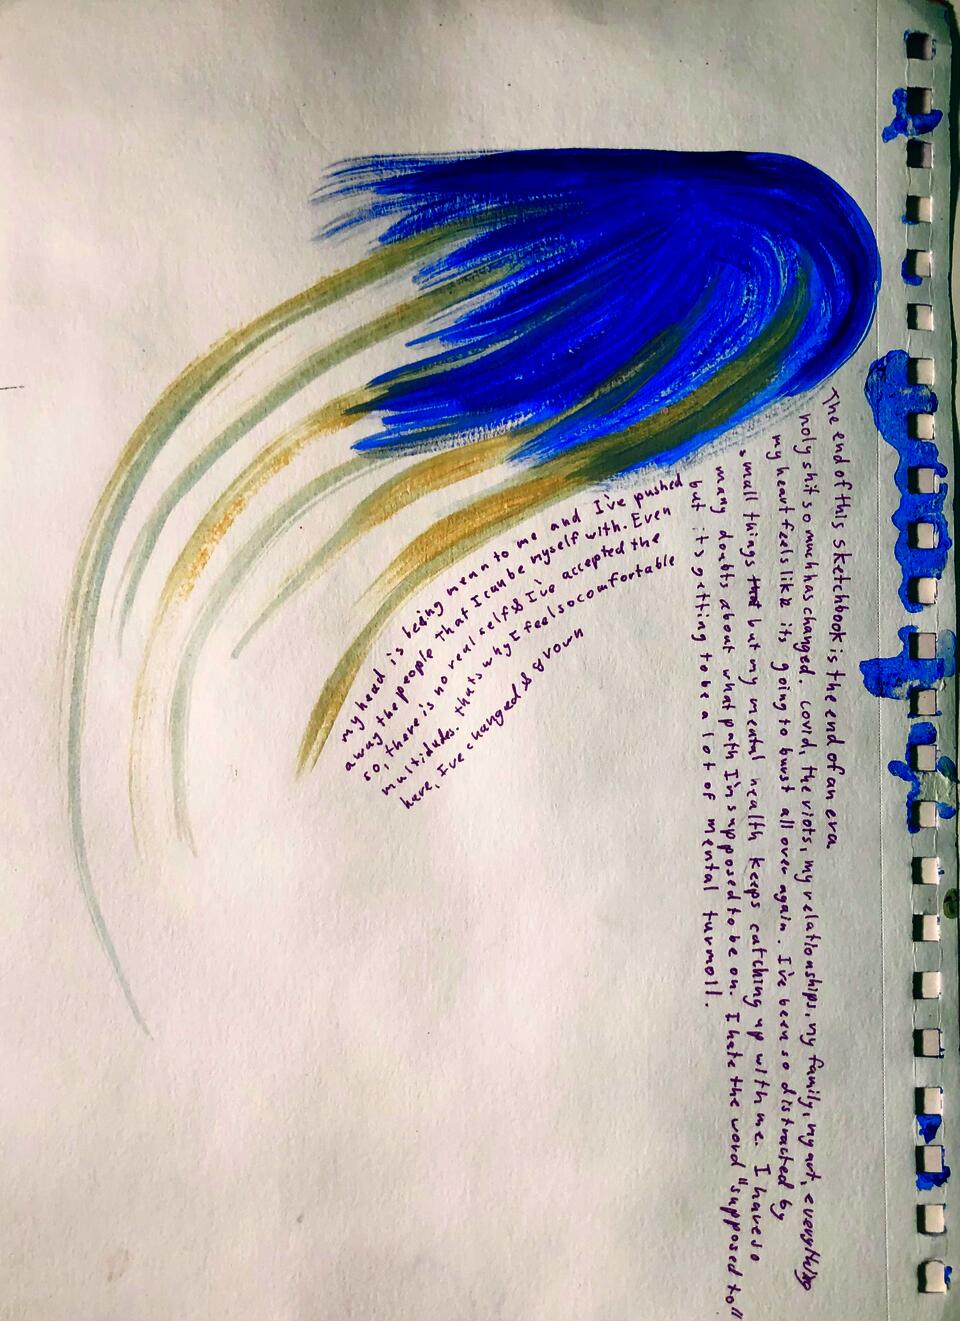 The end of this sketchbook is the end of an era
holy shit so much has changed. covid, the riots, my relationships, my family, my art, everything
my heart feels like its going to burst all over again. I've been so distracted by
small things but my mental health keeps catching up with me. I have so
many doubts about what path I'm supposed to be on. I hate the word "supposed to"
but its getting to be a lot of mental turmoil.
my head is being mean to me and I've pushed
away the people that I can be myself with. Even
so, there is no real self & I've accepted the
multidudes. thats why I feel so comfortable
here, I've changed & grown